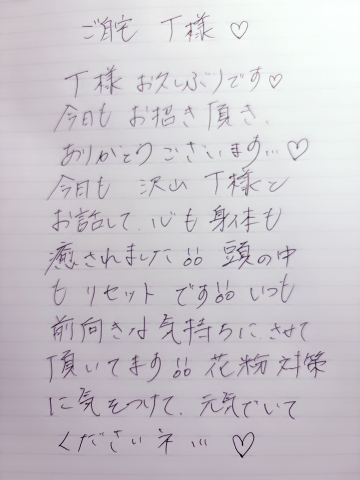 ご自宅 T様 ♡
T様 お久しぶりです♡
今日も お招き頂き、
ありがとうございます…♡
今日も 沢山 T様と
お話して、心も 身体も
癒されました 頭の中
も リセット です いつも
前向きな気持ちにさせて
頂いてます 花粉対策
に気をつけて、元気でいて
くださいネ… ♡